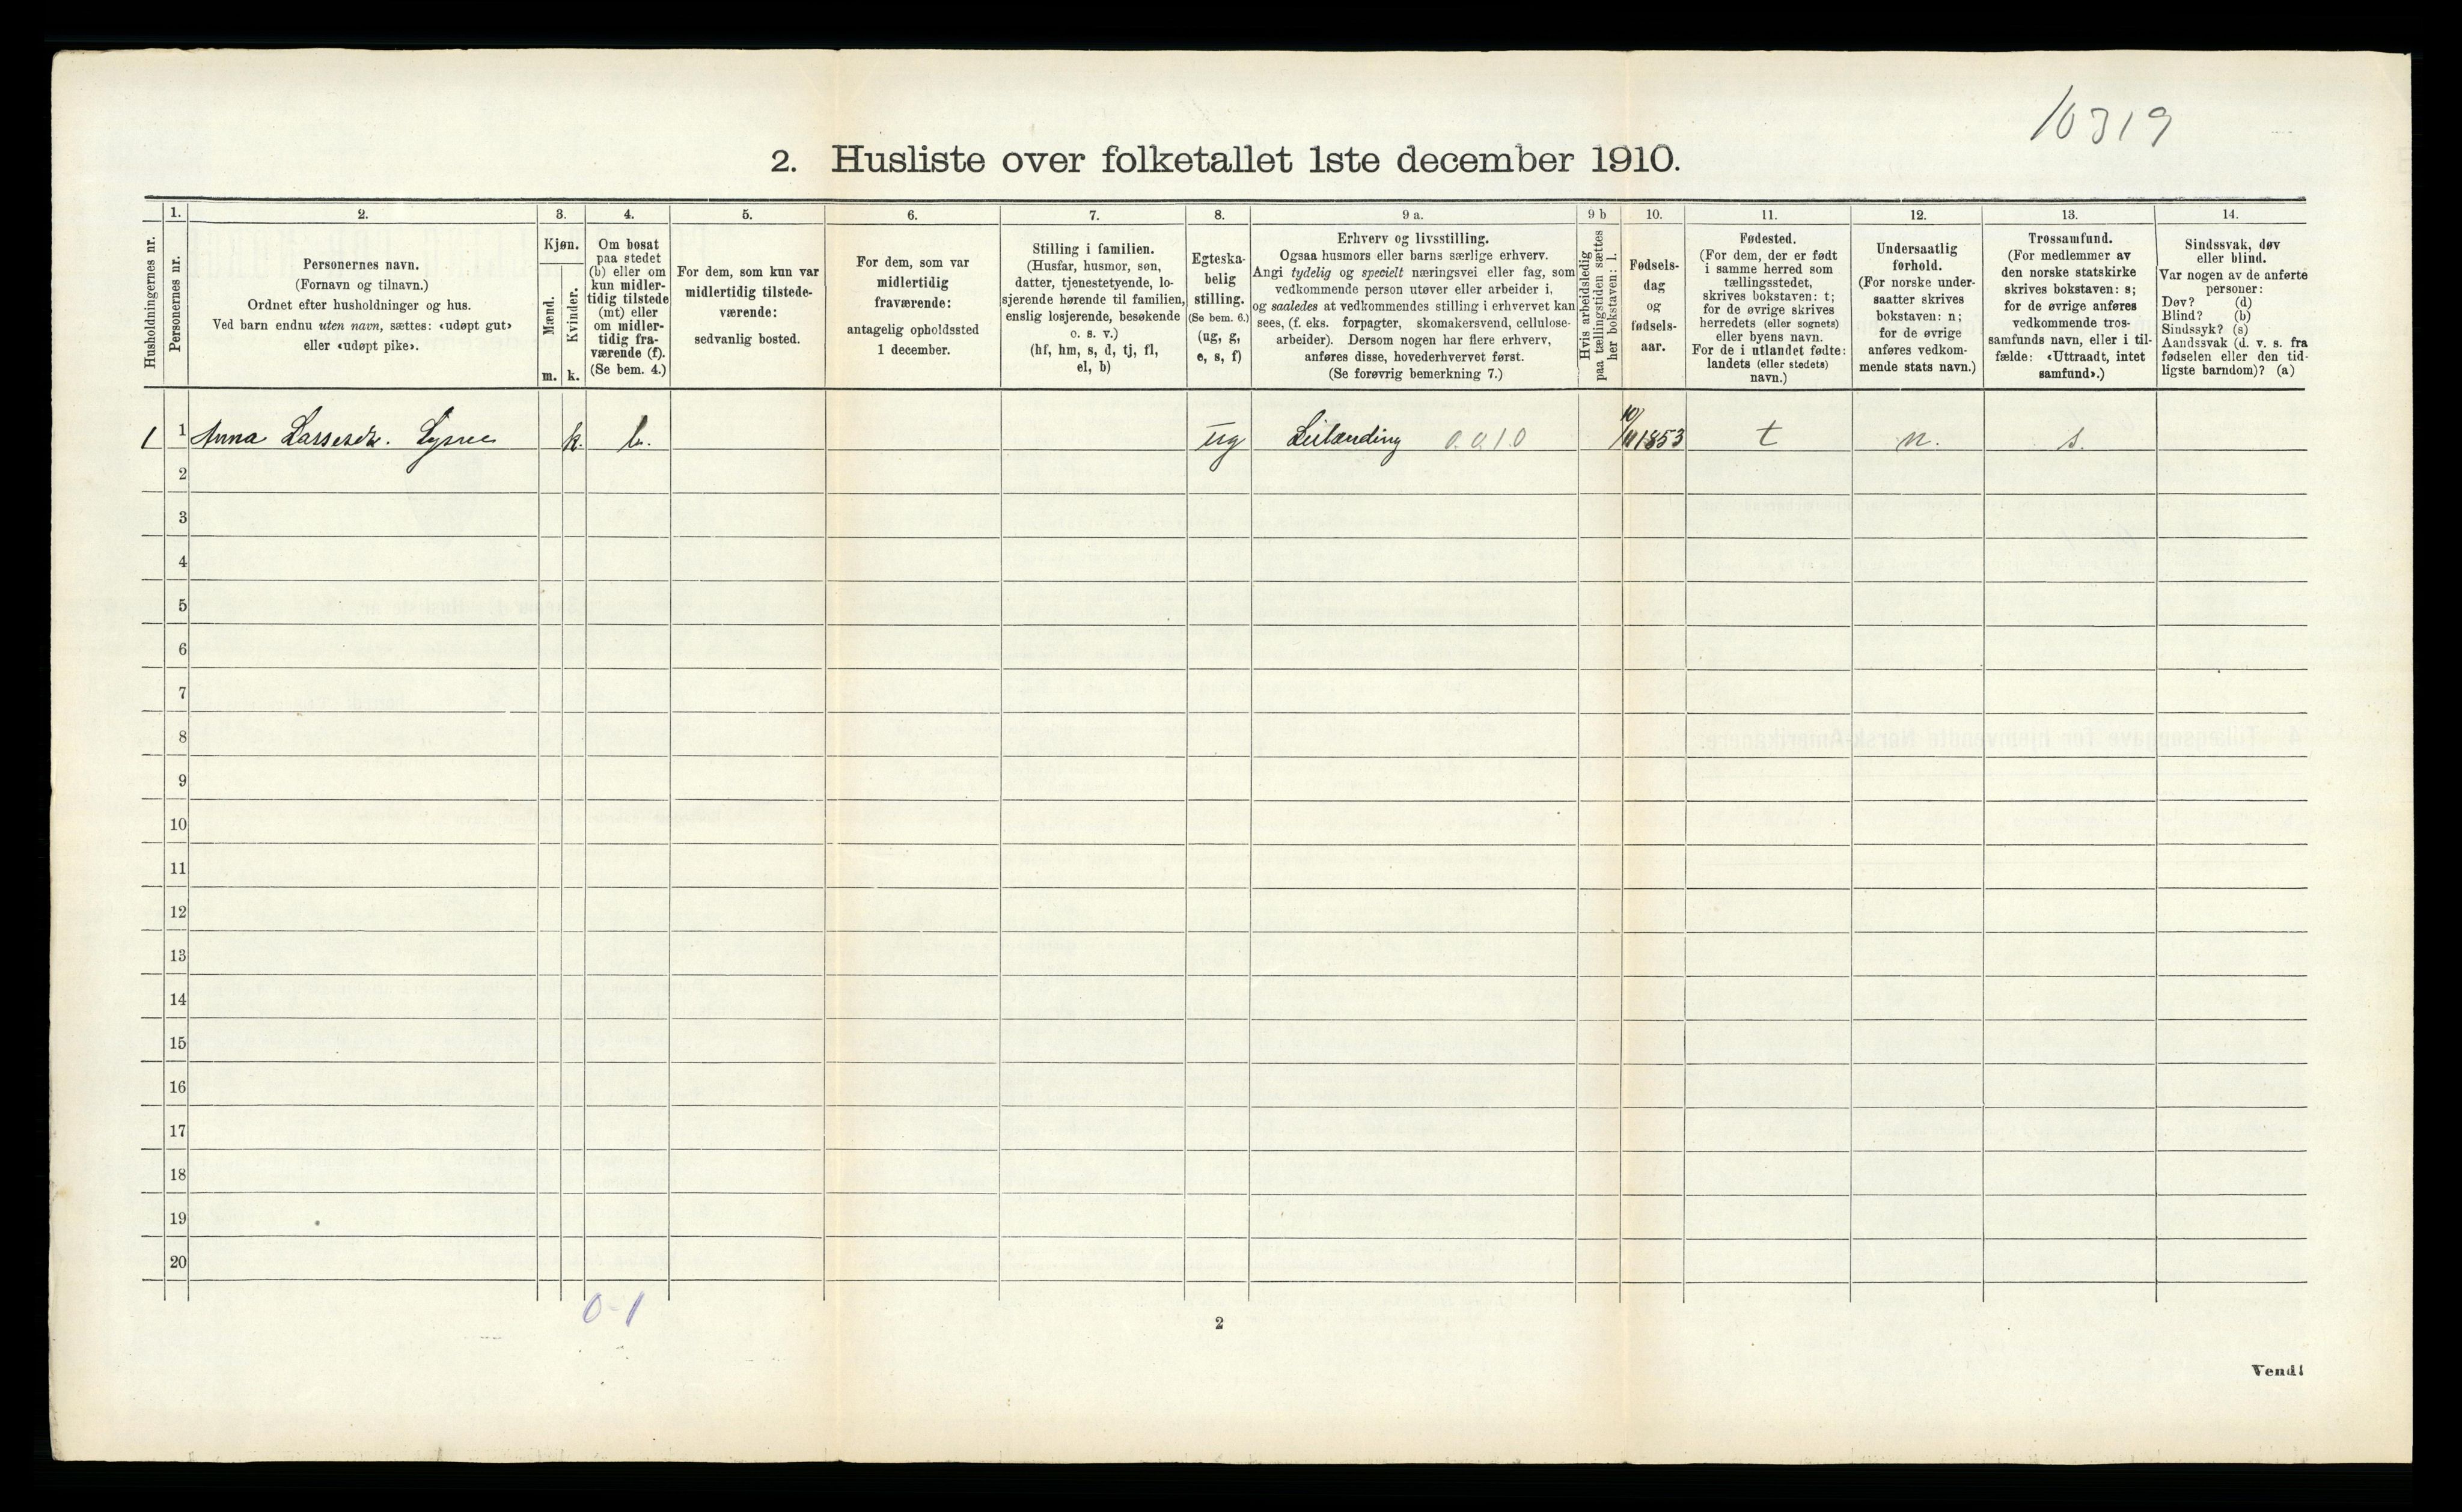 10319
2. Husliste over folketallet 1ste december 1910.
Husholdningernes nr.
1.
Personernes nr.
2.
Personernes navn.
(Fornavn og tilnavn.)
Ordnet efter husholdninger og hus.
Ved barn endnu uten navn, sættes: «udøpt gut»
eller «udøpt pike».
3.
Kjøn.
Mænd.
Kvinder.
m. k.
4.
Om bosat
paa stedet
(b) eller om
kun midler-
tidig tilstede
(mt) eller
om midler-
tidig fra-
værende (f).
(Se bem. 4.)
5.
For dem, som kun var
midlertidig tilstede-
værende:
sedvanlig bosted.
6.
For dem, som var
midlertidig
fraværende:
antagelig opholdssted
1 december.
7.
Stilling i familien.
(Husfar, husmor, søn,
datter, tjenestetyende, lo-
sjerende hørende til familien,
enslig losjerende, besøkende
o. s. v.)
(hf, hm, s, d, tj, fl,
el, b)
8.
Egteska-
belig
stilling.
(Se bem. 6.)
(ug, g,
e, s, f)
9 a.
Erhverv og livsstilling.
Ogsaa husmors eller barns særlige erhverv.
Angi tydelig og specielt næringsvei eller fag, som
vedkommende person utøver eller arbeider i,
og saaledes at vedkommendes stilling i erhvervet kan
sees, (f. eks. forpagter, skomakersvend, cellulose-
arbeider). Dersom nogen har flere erhverv,
anføres disse, hovederhvervet først.
(Se forøvrig bemerkning 7.)
9 b
Hvis arbeidsledig
paa tællingstiden sættes
her bokstaven: l.
10.
Fødsels-
dag
og
fødsels-
aar.
11.
Fødested.
(For dem, der er født
i samme herred som
tællingsstedet,
skrives bokstaven: t;
for de øvrige skrives
herredets (eller sognets)
eller byens navn.
For de i utlandet fødte:
landets (eller stedets)
navn.)
12.
Undersaatlig
forhold.
(For norske under-
saatter skrives
bokstaven: n;
for de øvrige
anføres vedkom-
mende stats navn.)
13.
Trossamfund.
(For medlemmer av
den norske statskirke
skrives bokstaven: s;
for de øvrige anføres
vedkommende tros-
samfunds navn, eller i til-
fælde: «Uttraadt, intet
samfund».)
14.
Sindssvak, døv
eller blind.
Var nogen av de anførte
personer:
Døv? (d)
Blind? (b)
Sindssyk? (s)
Aandssvak (d. v. s. fra
fødselen eller den tid-
ligste barndom)? (a)
1 1 Anna Lassesdr. Lysne k. b. ug Leilænding 0.0.10 10/11 1853 t n. s.
2
3
4
5
6
7
8
9
10
11
12
13
14
15
16
17
18
19
20
0-1
2
Vend!